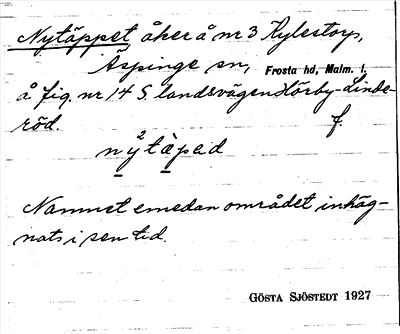 Nytäppet, åker å nr 3 Rylestorp,
Äspinge sn, Frosta hd, Malm. l.
å fig. nr 14 S. landsvägen Hörby-Linde-
röd. f.
nỳ²tàped
Namnet emedan området inhäg-
nats i sen tid.
GÖSTA SJÖSTEDT 1927